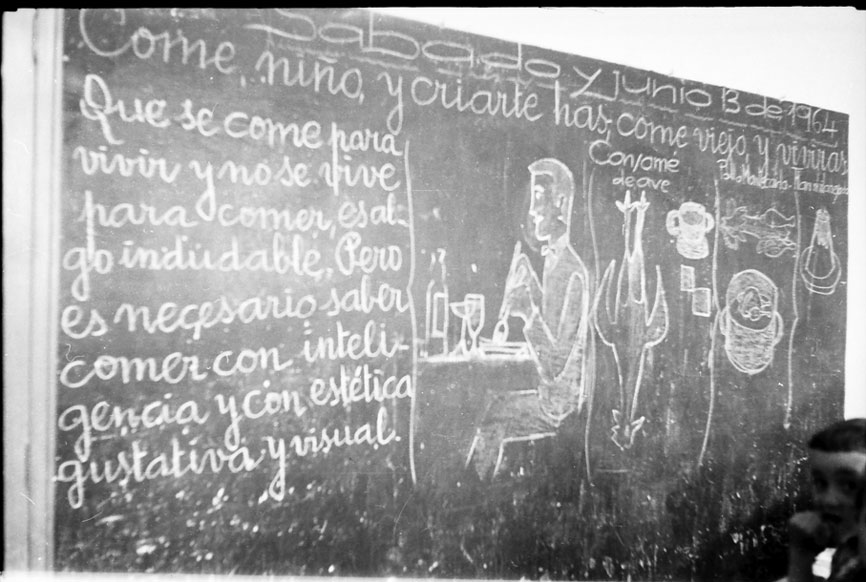 Sabado y junio 13 de 1964
Come, niño, y criarte has; come viejo y vivirás
Que se come para
vivir y no se vive
para comer, es al-
go indudable. Pero
es necesario saber
comer con inteli-
gencia y con estética
gustativa y visual.
Consomé
de ave